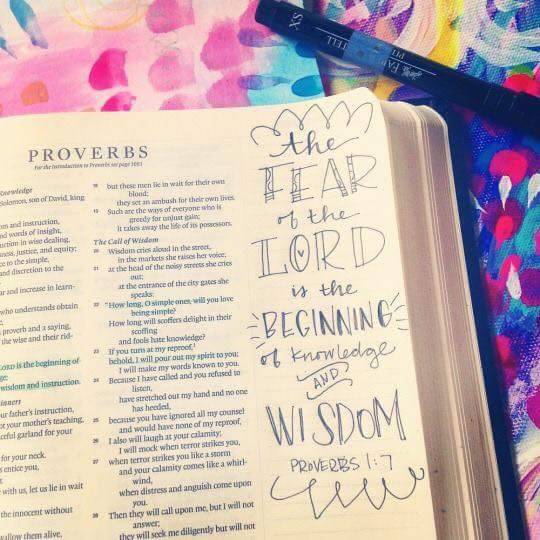 PROVERBS
For the Introduction to Proverbs see page 1001
Knowledge
Solomon, son of David, king
and instruction,
words of insight,
instruction in wise dealing,
justice, and equity;
to the simple,
and discretion to the
and increase in learn-
who understands obtain
proverb and a saying,
the wise and their rid-
LORD is the beginning of
wisdom and instruction.
your father's instruction,
not your mother's teaching,
graceful garland for your
for your neck.
entice you,
with us, let us lie in wait
the innocent without
swallow them alive,
18 but these men lie in wait for their own
blood;
they set an ambush for their own lives.
19 Such are the ways of everyone who is
greedy for unjust gain;
it takes away the life of its possessors.
The Call of Wisdom
20 Wisdom cries aloud in the street,
in the markets she raises her voice;
21 at the head of the noisy streets she cries
out;
at the entrance of the city gates she
speaks:
22 "How long, O simple ones, will you love
being simple?
How long will scoffers delight in their
scoffing
and fools hate knowledge?
23 If you turn at my reproof,
behold, I will pour out my spirit to you;
I will make my words known to you.
24 Because I have called and you refused to
listen,
have stretched out my hand and no one
has heeded,
25 because you have ignored all my counsel
and would have none of my reproof,
26 I also will laugh at your calamity;
I will mock when terror strikes you,
27 when terror strikes you like a storm
and your calamity comes like a whirl-
wind,
when distress and anguish come upon
you.
28 Then they will call upon me, but I will not
answer;
they will seek me diligently but will not
the
FEAR
of the
LORD
is the
BEGINNING
of knowledge
AND
WISDOM
PROVERBS 1:7